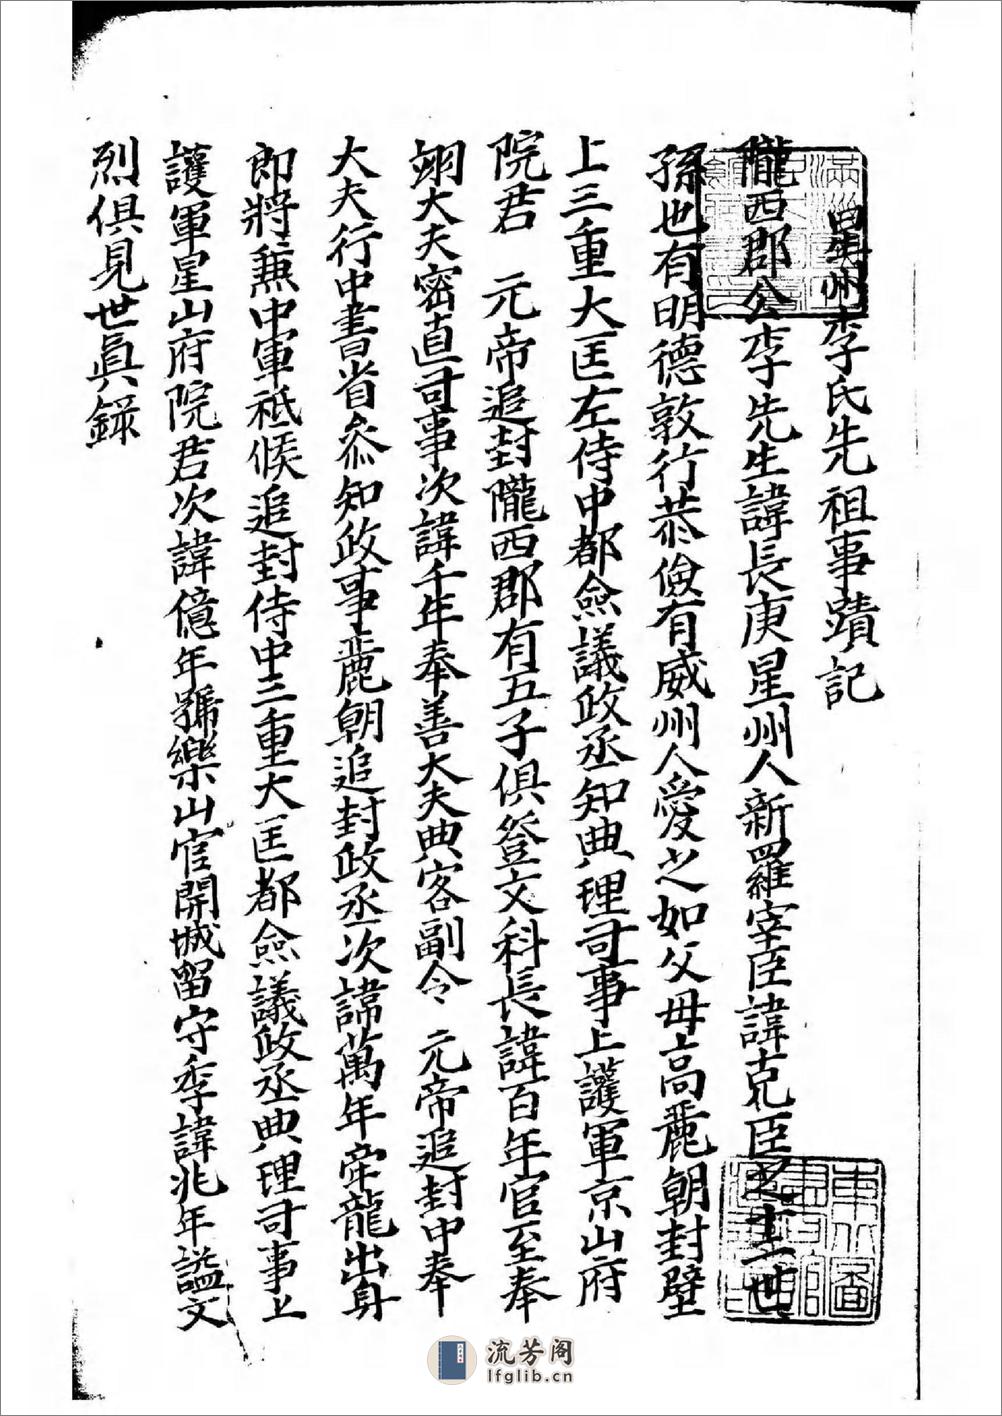 星州李氏先祖事蹟記
隴西郡公李先生諱長庚星州人新羅宰臣諱克臣之十二世
孫也有明德敦行恭儉有威州人愛之如父母高麗朝封壁
上三重大匡左侍中都僉議政丞知典理司事上護軍京山府
院君 元帝追封隴西郡有五子俱登文科長諱百年官至奉
翊大夫密直司事次諱千年奉善大夫典客副令 元帝追封中奉
大夫行中書省叅知政事麗朝追封政丞次諱萬年牵龍出身
即將蕪中軍祗候追封侍中三重大匡都僉議政丞典理司事上
護軍星山府院君次諱億年號樂山官開城留守季諱兆年謚文
烈俱見世眞錄
流芳阁
lfglib.cn